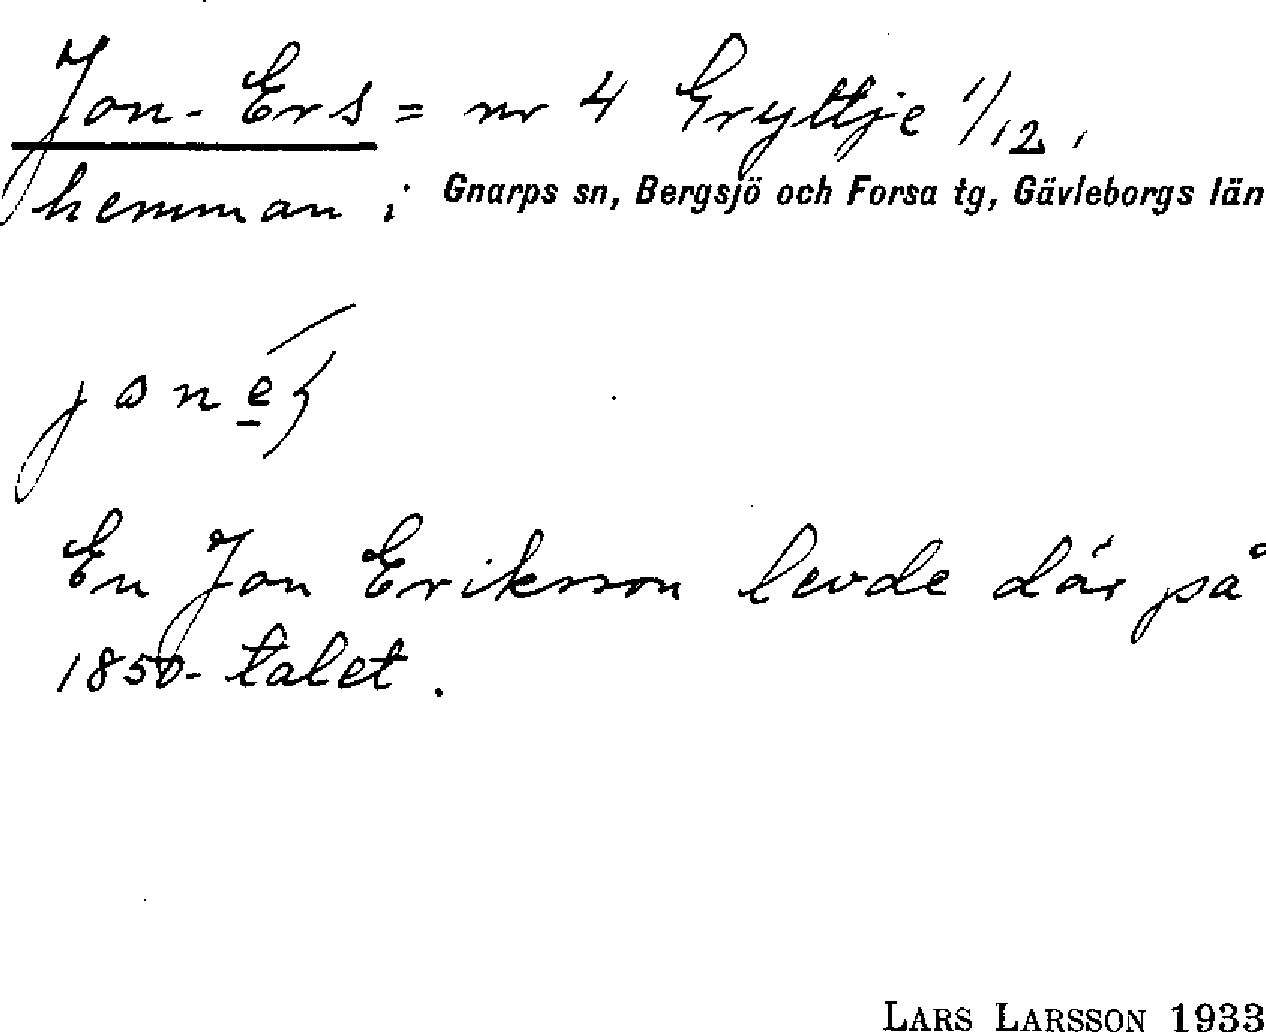 Jon-Ers = nr 4 Gryttje 1/12,
hemman i Gnarps sn, Bergsjö och Forsa tg, Gävleborgs län
En Jon Eriksson levde där på
1850-talet.
LARS LARSSON 1933